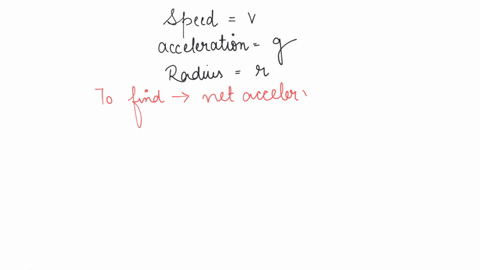 Speed = v
acceleration = g
Radius = r
To find → net acceler